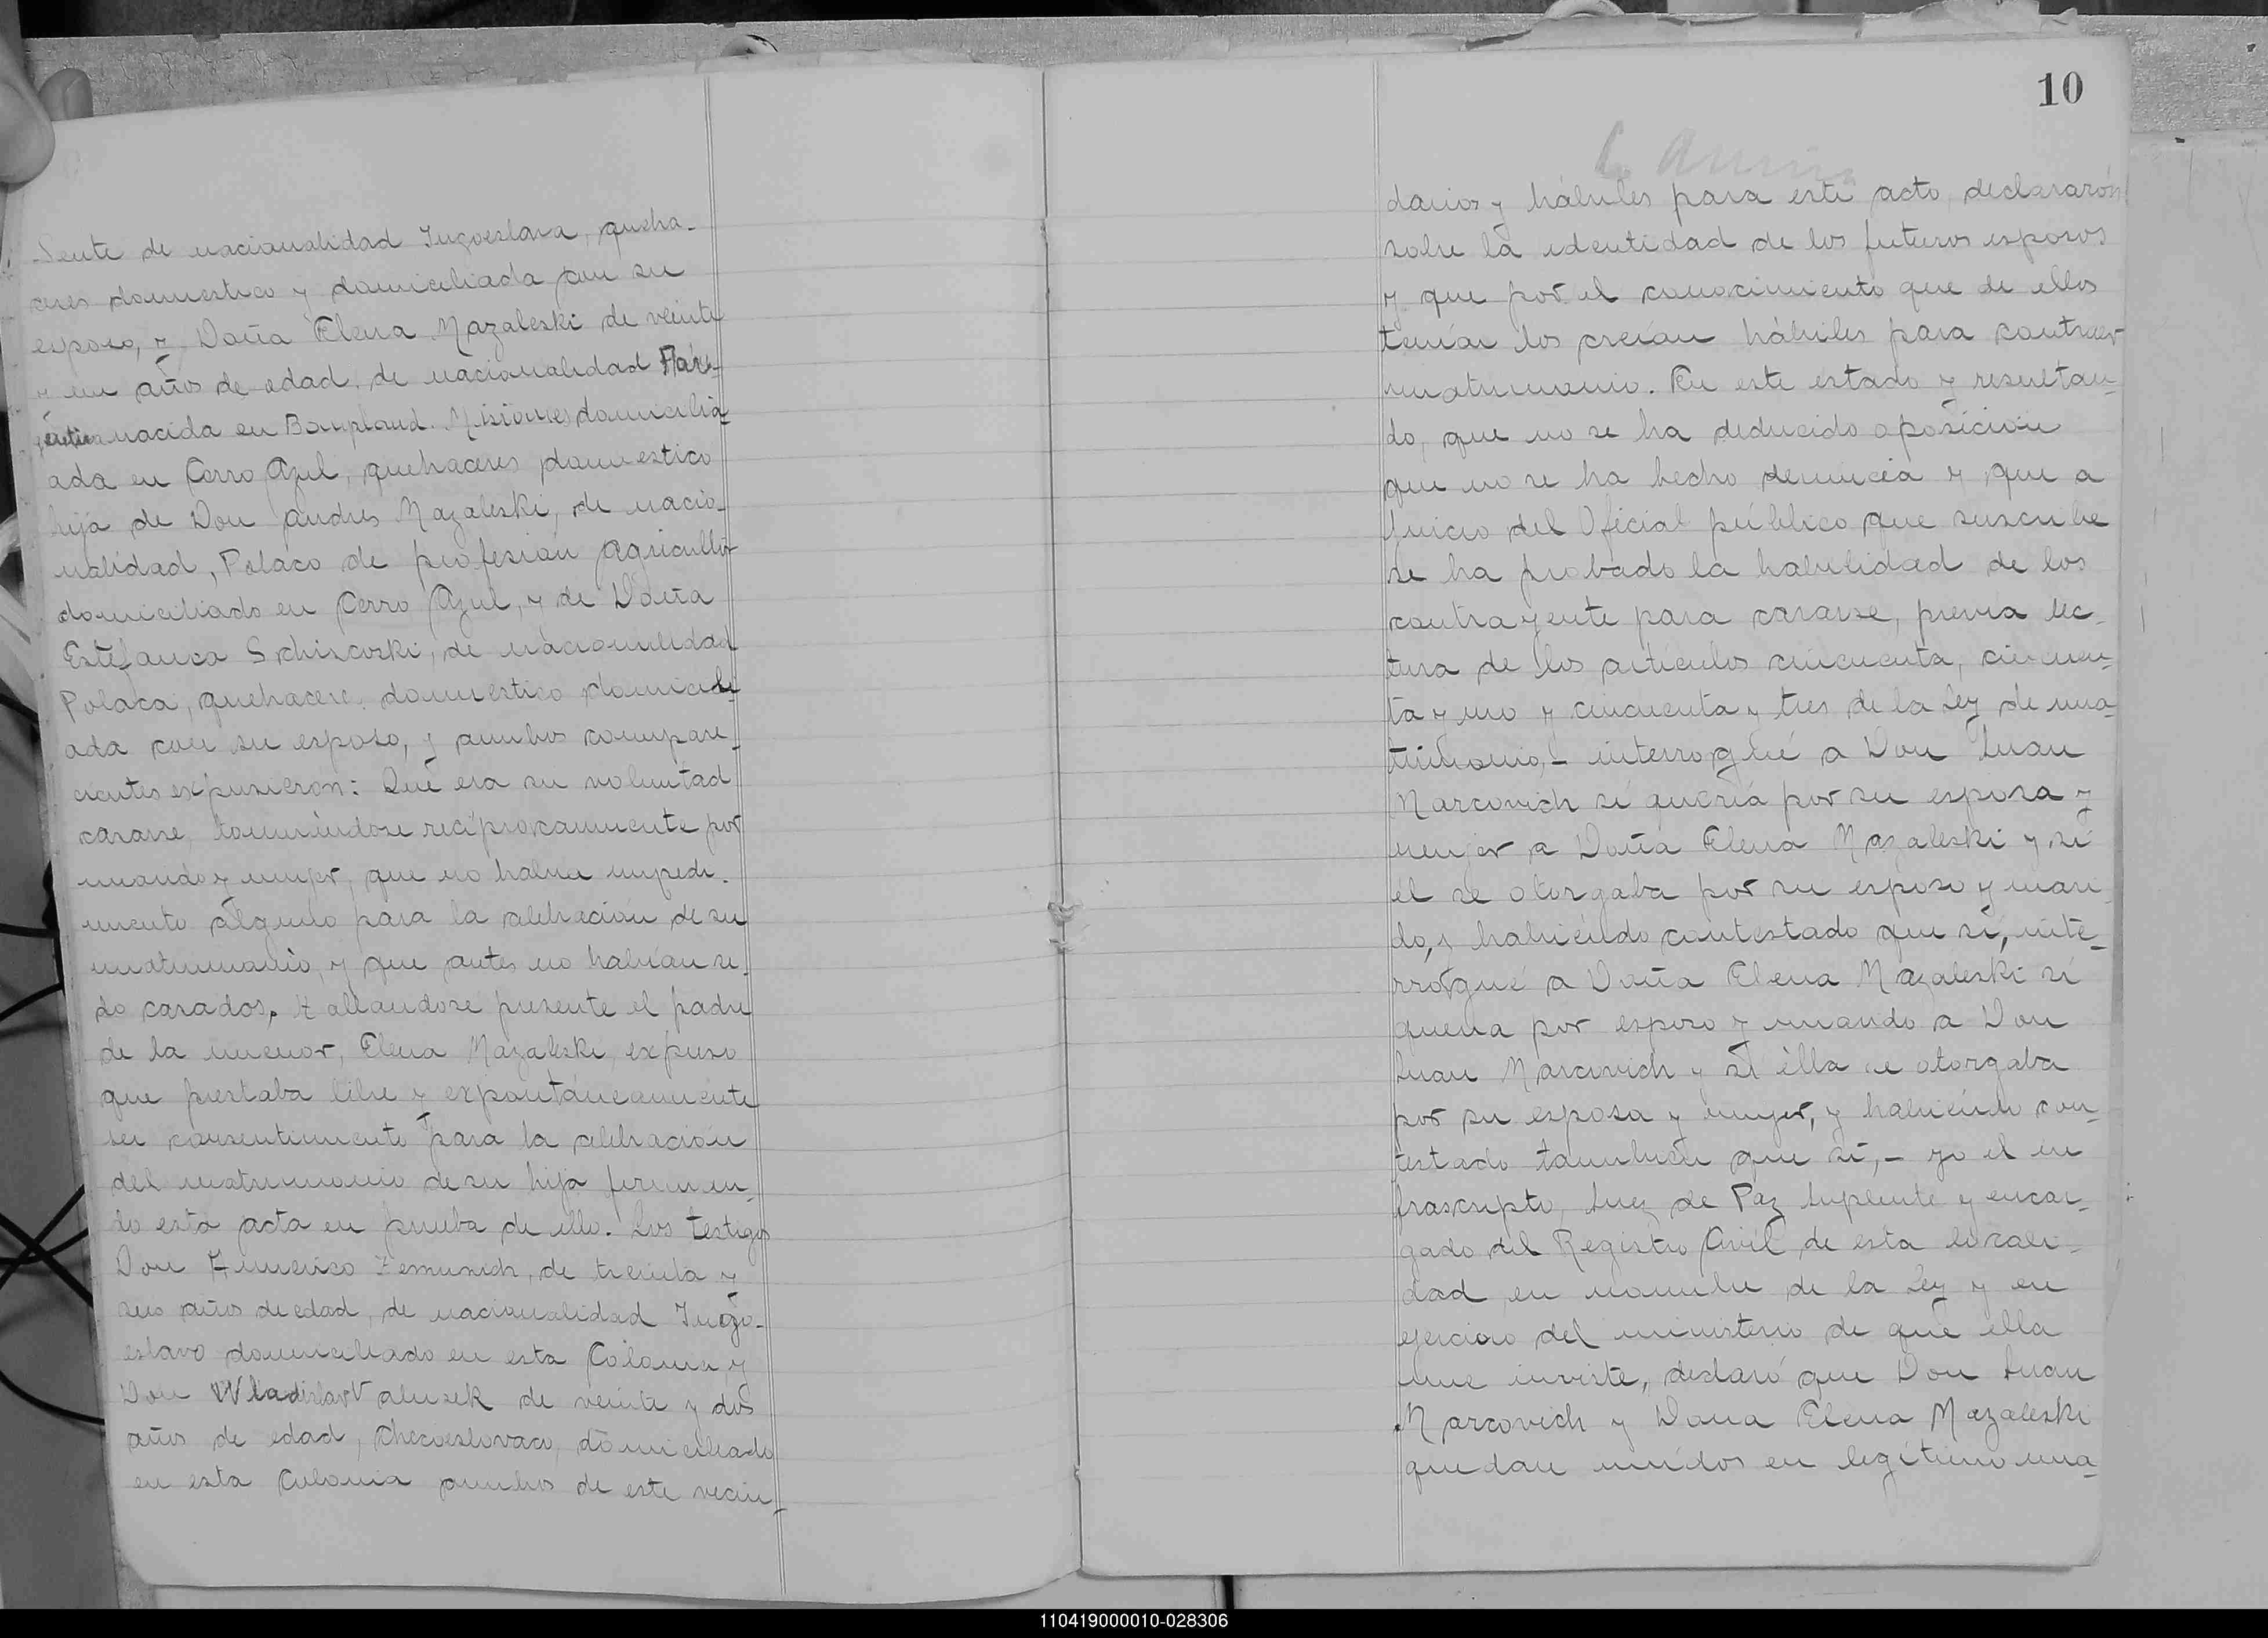 Sente de nacionalidad Jugoeslava, queha-
ceres domestico y domiciliada con su
esposo, y Doña Elena Mazaleski de veinte
y un años de edad, de nacionalidad
nacida en Bonpland. Misiones domicilia
ada en Cerro Azul, quehaceres domestico
hija de Don Andres Mazaleski, de nacio-
nalidad, Polaco de profesión agricultor
domiciliado en Cerro Azul, y de Doña
Estefanca Schiscorki, de nacionalidad
Polaca, quehacere. domestico domicili-
ada con su esposo, y ambos compare-
cientes expusieron: Que era su voluntad
casarse, tomándose recíprocamente por
marido y mujer, que no habia impedi-
mento alguno para la celebración de su
matrimonio, y que antes no habían si-
do casados. Hallandose presente el padre
de la menor, Elena Mazaleski, expuso
que prestaba libre y expontáneamente
su consentimiento para la celebración
del matrimonio de su hija firman-
do esta acta en prueba de ello. Los testigos
Don Americo Zemunich, de treinta y
años de edad, de nacionalidad Jugo-
eslavo domiciliado en esta Colonia, y
Don Wladislav Valusek de veinte y dos
años de edad, Checoeslovaco, domiciliado
en esta Colonia ambos de este vecin-
10
darios y hábiles para este acto, declararón
sobre la identidad de los futuros esposos
y que por el conocimiento que de ellos
tenían los creían hábiles para contraer
matrimonio. En este estado y resultan-
do, que no se ha deducido oposición
que no se ha hecho denuncia y que a
Juicio del Oficial público que suscribe
se ha probado la habilidad de los
contrayente para casarse, previa lec-
tura de los artículos cincuenta, cincuen-
ta y uno y cincuenta y tres de la Ley de ma-
trimonio,- interrogué a Don Juan
Marcovich si quería por su esposa y
mujer a Doña Elena Mazaleski y si
el se otorgaba por su esposo y mari
do, y habiéndo contestado que si, inte-
rrogué a Doña Elena Mazaleski si
queria por esposo y marido a Don
Juan Marcovich y si élla se otorgaba
por su esposa y mujer, y habiéndo con-
testado también que si,- yo el in
frascripto, Juez de Paz Suplente y encar-
gado del Registro Civil de esta locali-
dad en nombre de la Ley y en
ejercicio del ministerio de que ella
me inviste, declaró que Don Juan
Marcovich y Dona Elena Mazaleski
quedan unídos en legítimo ma-
110419000010-028306